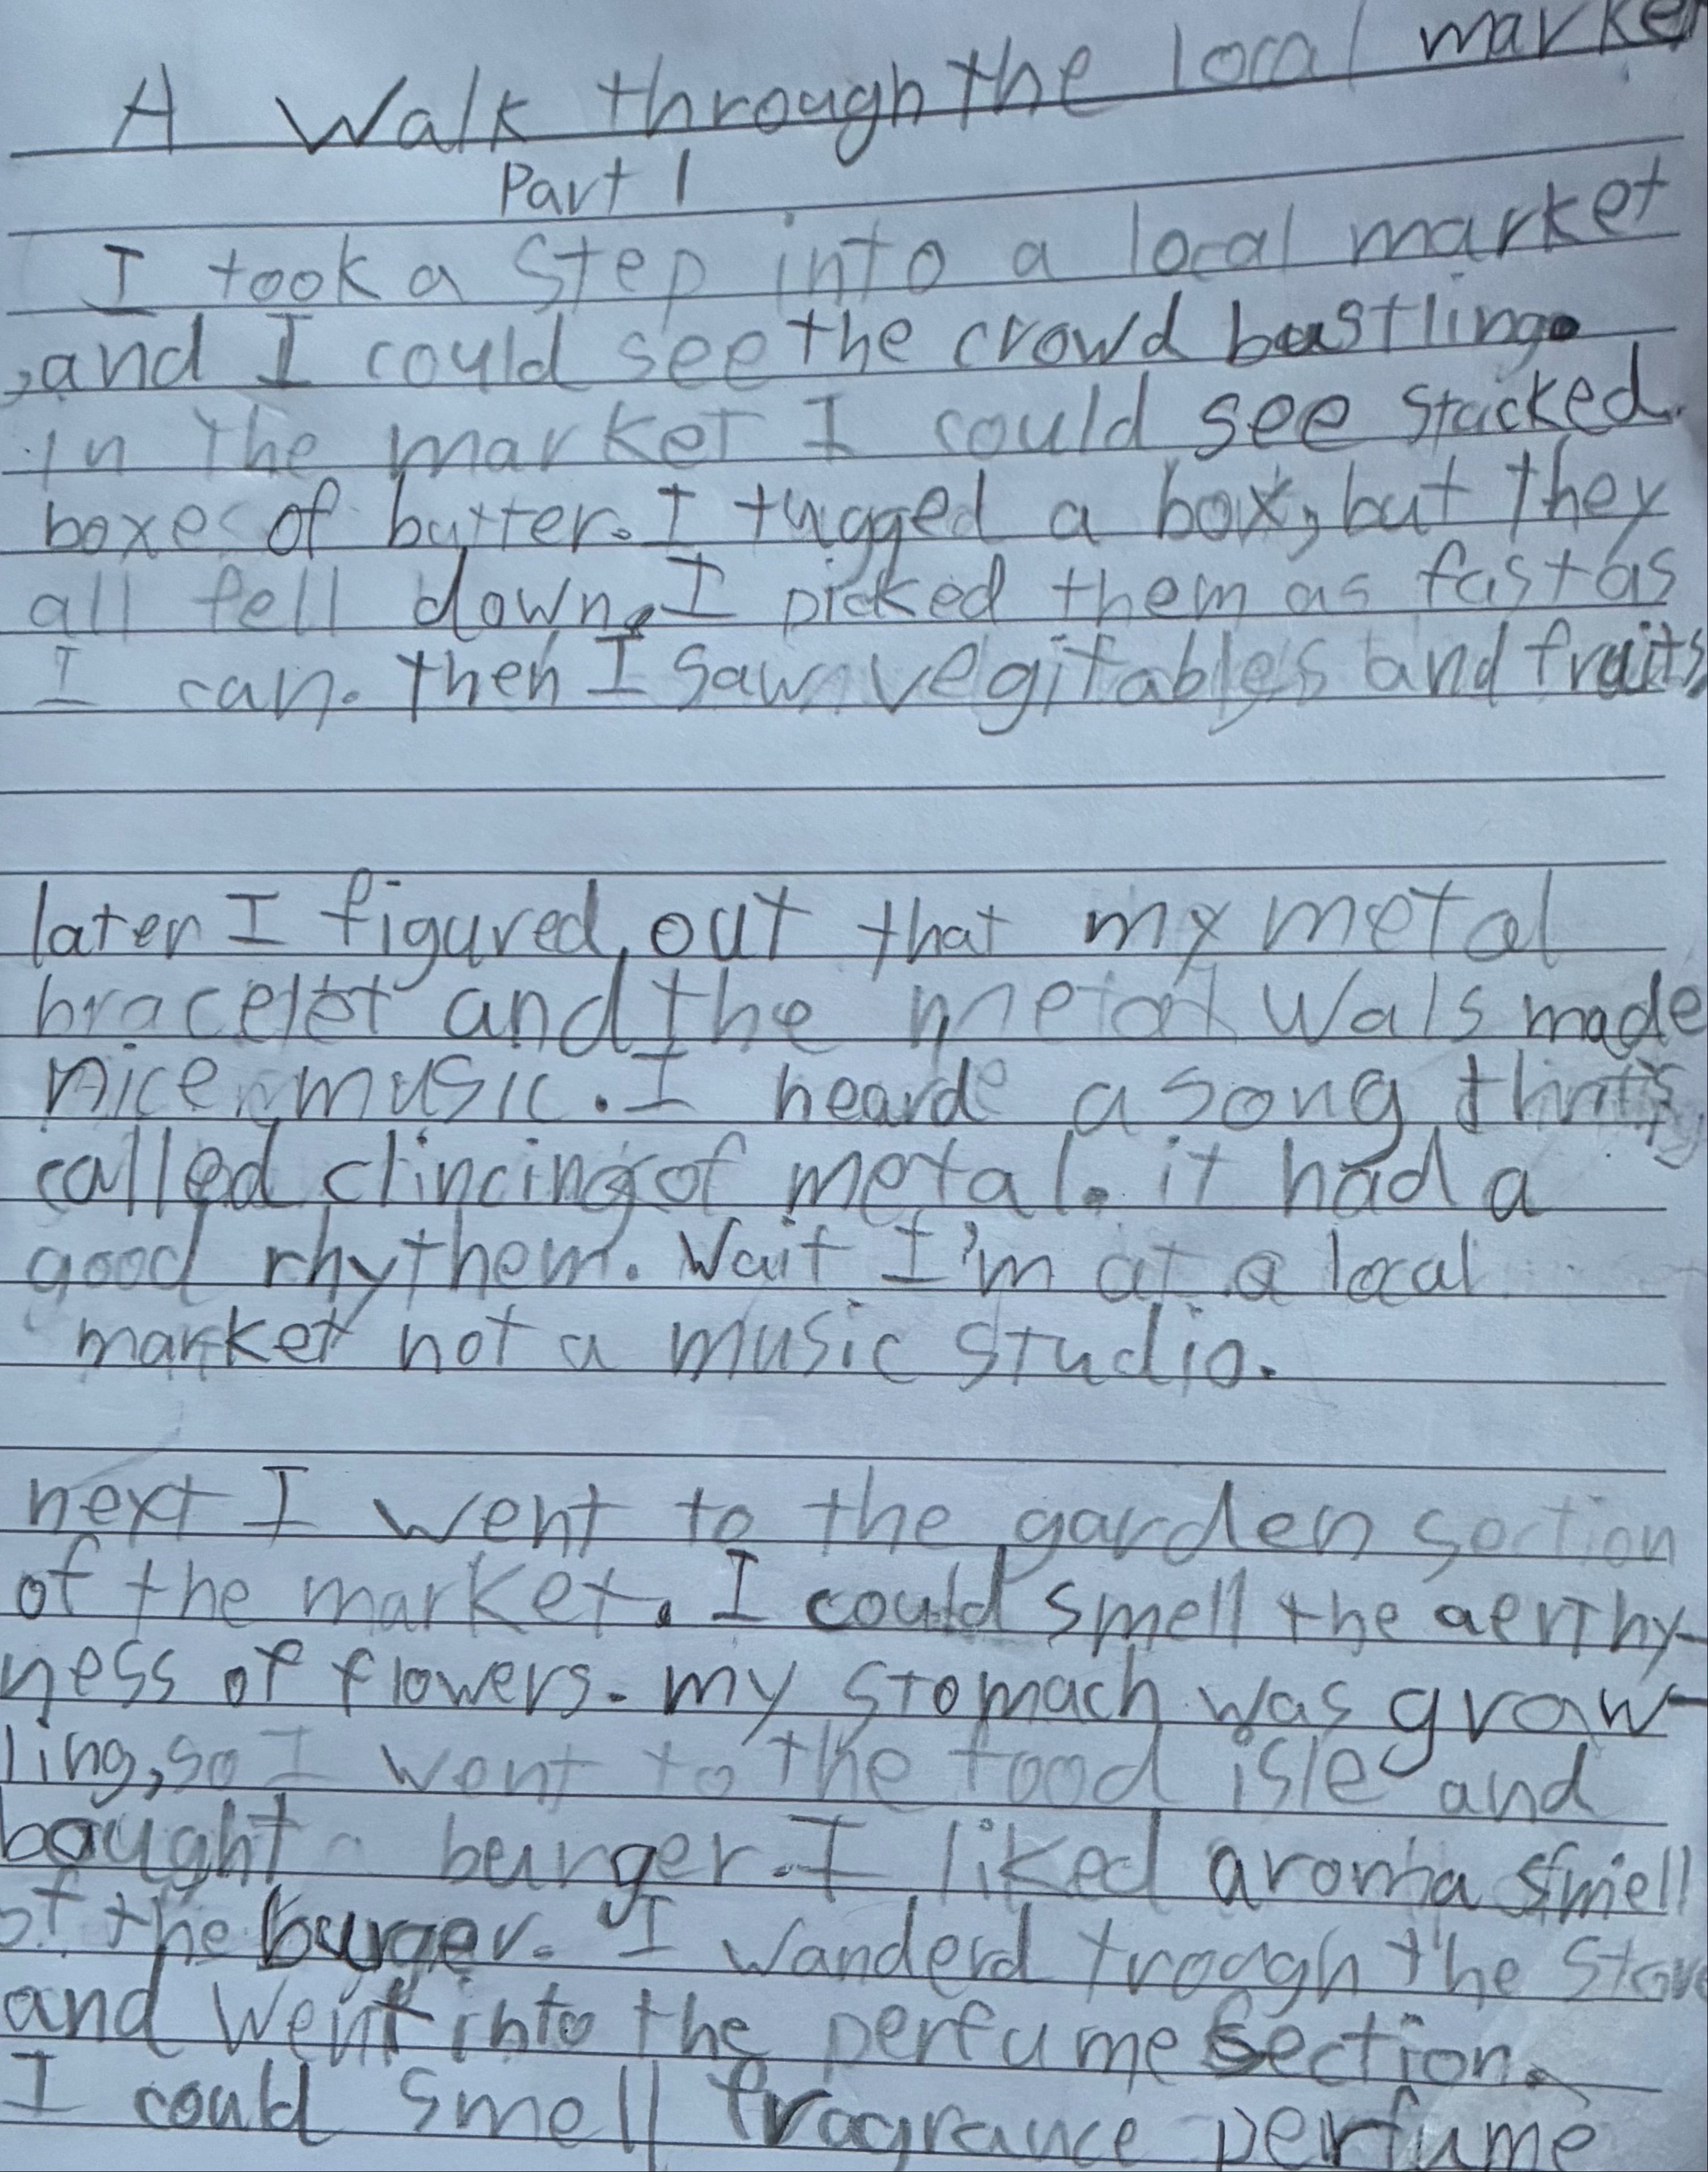 A Walk through the local market
Part 1
I took a step into a local market
,and I could see the crowd bustling.
in the market I could see stacked
boxes of butter. I tugged a box, but they
all fell down. I picked them as fast as
I can. then I saw vegitables and fruits,
later I figured out that my metal
bracelet and the metal wals made
nice music. I heard a song that's
called clincing of metal. it had a
good rhythem. Wait I'm at a local
market not a music studio.
next I went to the garden section
of the market. I could smell the aerthy-
ness of flowers. my stomach was graw-
ling, so I went to the food isle and
bought a beurger. I liked aroma smell
of the burger. I wanderd trough the store
and went into the perfume section.
I could smell fragrance perfume